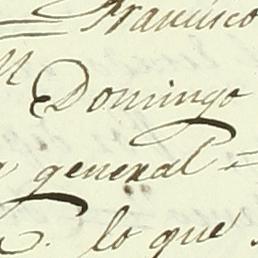 Francisco
Domingo
general =
lo que